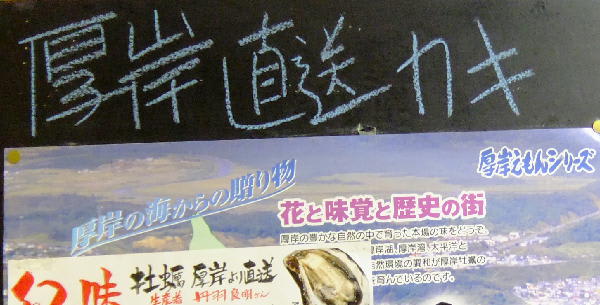 厚岸直送カキ
厚岸えもんシリーズ
厚岸の海からの贈り物
花と味覚と歴史の街
厚岸の豊かな自然の中で育った本場の味をどうぞ。
厚岸湖、厚岸湾、太平洋と
自然環境の調和が厚岸牡蠣の
を育んでいるのです。
幻 味
牡蠣 厚岸より直送
生産者 丹羽良明さん